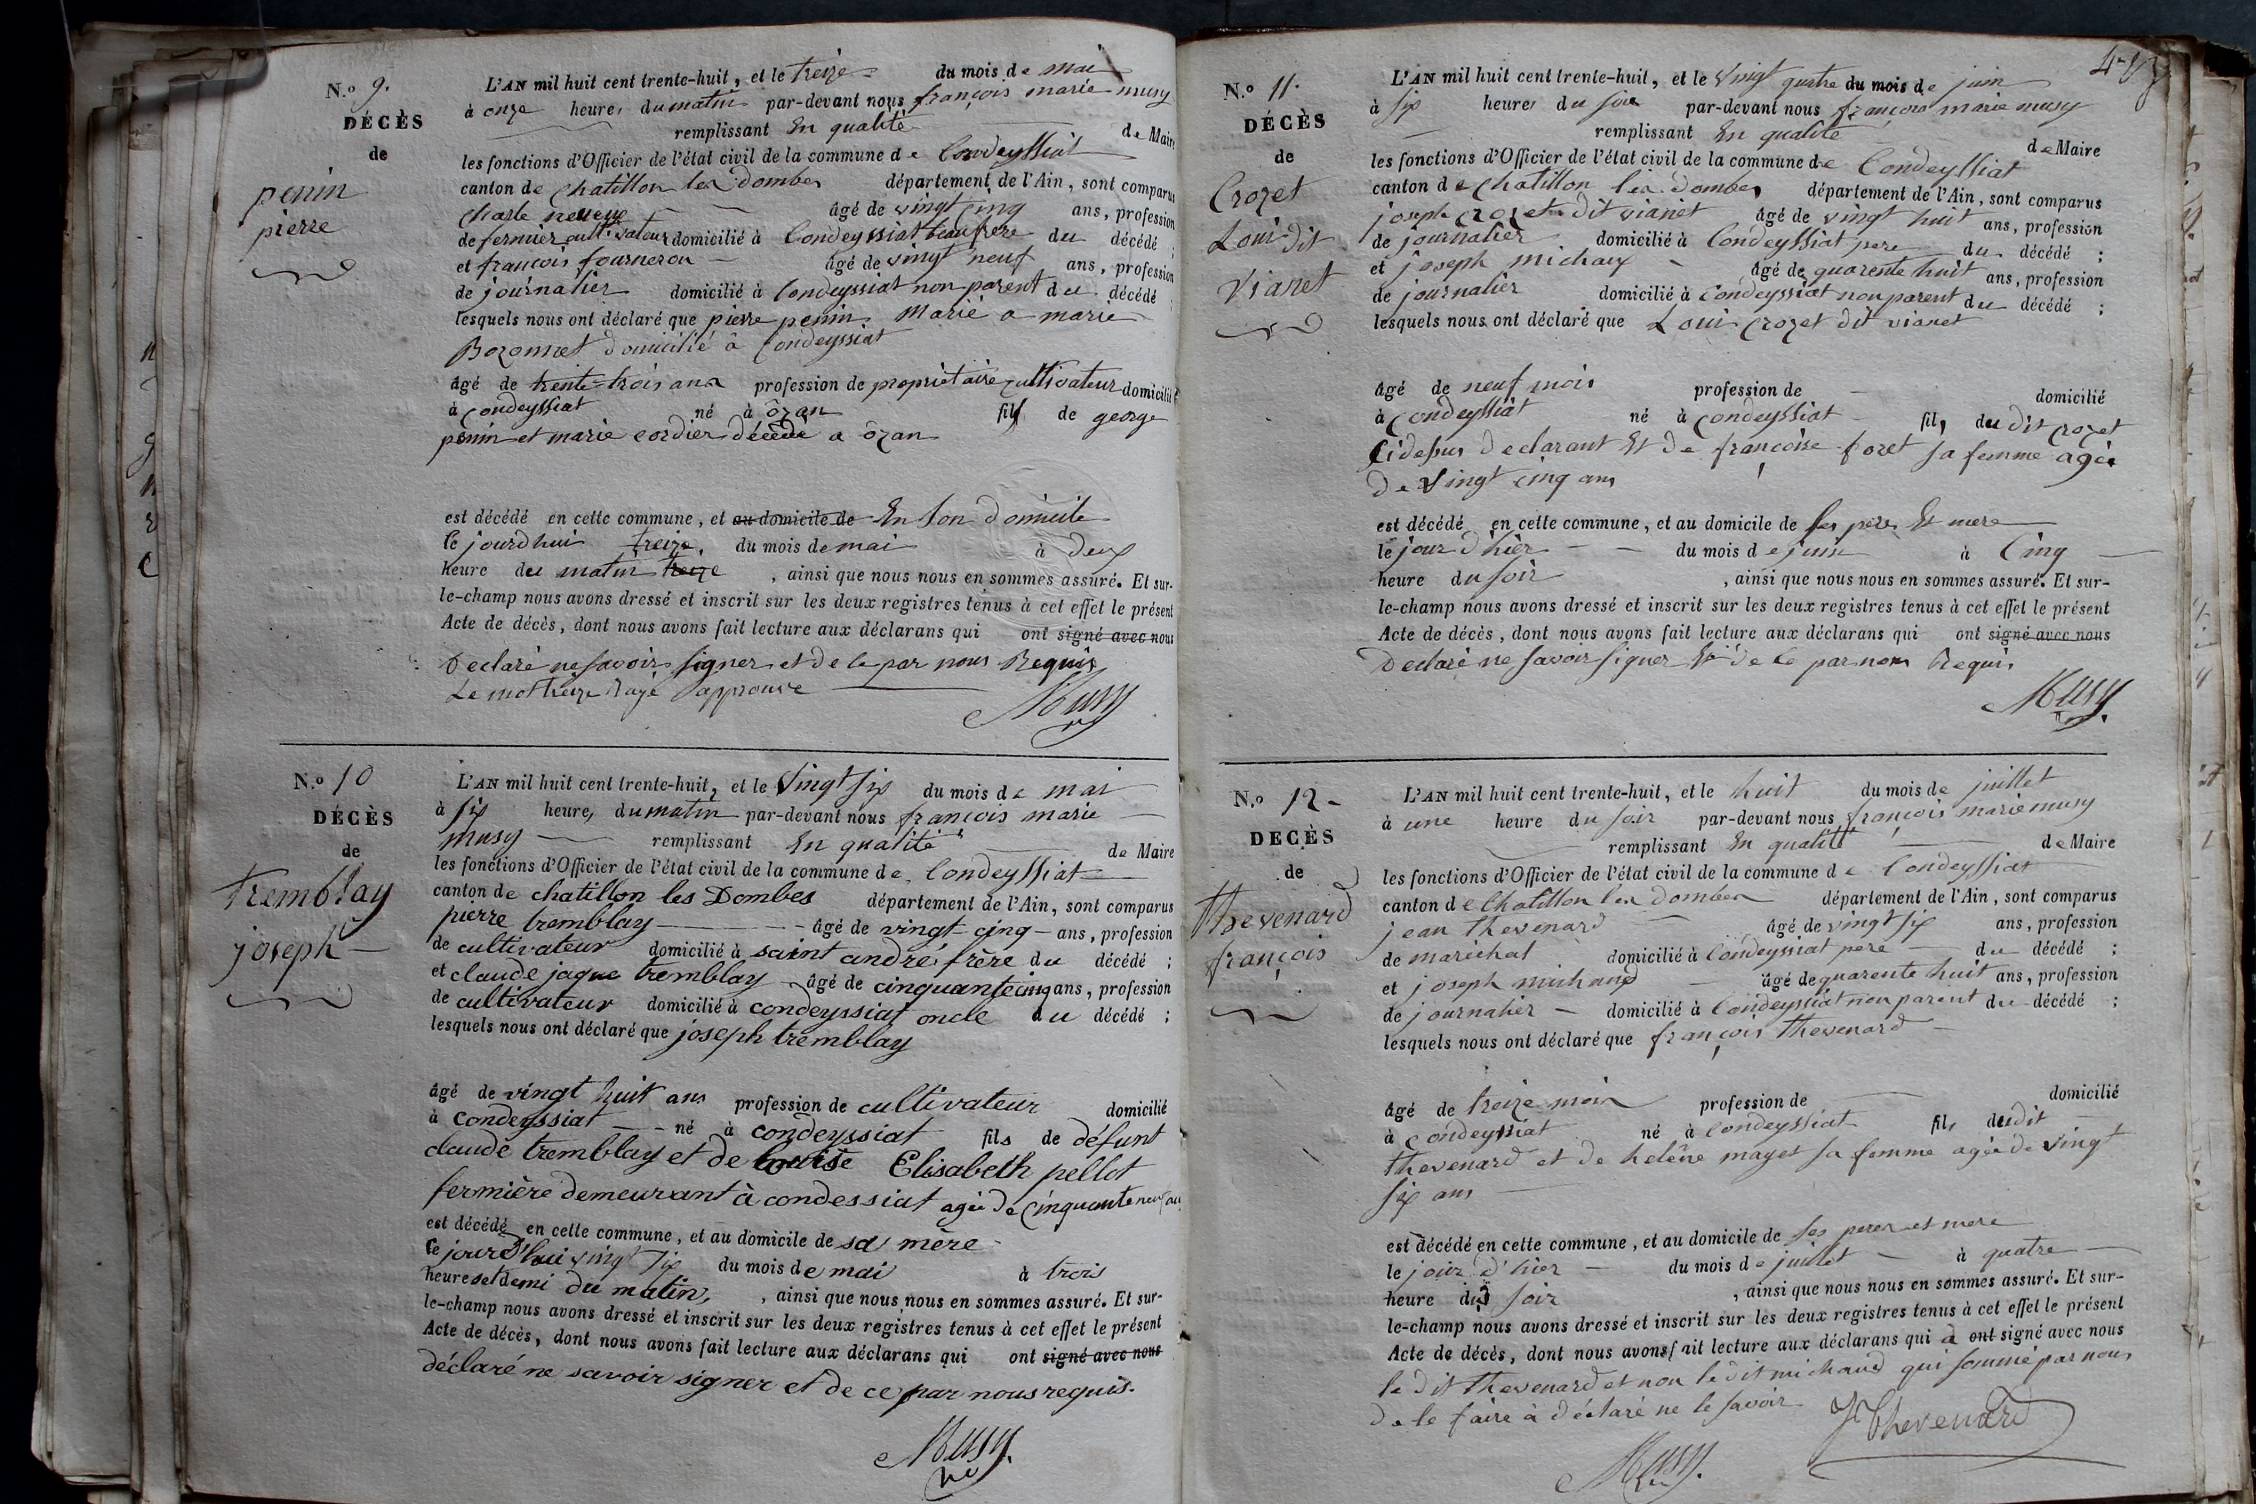 N.o 9.
DÉCÈS
de
penin
pierre
L'AN mil huit cent trente-huit, et le treize du mois de mai
à onze heures du matin par-devant nous françois marie musy
remplissant En qualité de Maire
les fonctions d'Officier de l'état civil de la commune de Condeyssiat
canton de chatillon les Dombes département de l'Ain, sont comparus
charle neveux âgé de vingt cinq ans, profession
de fermier cultivateur domicilié à Condeyssiat beaufrere du décédé ;
et francois fourneron âgé de vingt neuf ans, profession
de journalier domicilié à Condeyssiat non parent du décédé ;
lesquels nous ont déclaré que pierre penin Marié a marie
Bozonnet domicilié à Condeyssiat
âgé de trente-trois ans profession de propriétaire cultivateur domicilié
à Condeyssiat né à ôzan fils de george
penin et marie cordier décédé a ôzan
est décédé en cette commune, et au domicile de En Son domicile
le jourdhui treize du mois de mai à deux
heure du matin treize , ainsi que nous nous en sommes assuré. Et sur-
le-champ nous avons dressé et inscrit sur les deux registres tenus à cet effet le présent
Acte de décès, dont nous avons fait lecture aux déclarans qui ont signé avec nous
Déclaré ne savoir signer et de ce par nous Requis
Le mot treize Rayé approuvé
Musy
N.o 10
DÉCÈS
de
tremblay
joseph
L'AN mil huit cent trente-huit, et le Vingt six du mois de mai
à six heures du matin par-devant nous francois marie
musy remplissant En qualité de Maire
les fonctions d'Officier de l'état civil de la commune de Condeyssiat
canton de chatillon les Dombes département de l'Ain, sont comparus
pierre tremblay âgé de vingt-cinq ans, profession
de cultivateur domicilié à saint andré frère du décédé ;
et claude jaque tremblay âgé de cinquante cinq ans, profession
de cultivateur domicilié à condeyssiat oncle du décédé ;
lesquels nous ont déclaré que joseph tremblay
âgé de vingt huit ans profession de cultivateur domicilié
à condeyssiat né à condeyssiat fils de défunt
claude tremblay et de louise Elisabeth pellot
fermière demeurant à condessiat agée de cinquante neuf ans
est décédé en cette commune, et au domicile de sa mère
le jourd'hui vingt six du mois de mai à trois
heures et demi du matin, , ainsi que nous nous en sommes assuré. Et sur-
le-champ nous avons dressé et inscrit sur les deux registres tenus à cet effet le présent
Acte de décès, dont nous avons fait lecture aux déclarans qui ont signé avec nous
déclaré ne savoir signer et de ce par nous requis.
Musy.
N.o 11.
DÉCÈS
de
Crozet
Loui dit
Vianet
L'AN mil huit cent trente-huit, et le Vingt quatre du mois de juin
à six heures du soir par-devant nous françois marie musy
remplissant En qualité de Maire
les fonctions d'Officier de l'état civil de la commune de Condeyssiat
canton de chatillon les Dombes département de l'Ain, sont comparus
joseph crozet dit vianet âgé de vingt huit ans, profession
de journalier domicilié à Condeyssiat pere du décédé ;
et joseph michaux âgé de quarente huit ans, profession
de journalier domicilié à Condeyssiat non parent du décédé ;
lesquels nous ont déclaré que Loui crozet dit vianet
âgé de neuf mois profession de domicilié
à Condeyssiat né à Condeyssiat fils du dit crozet
Cidessus declarant Et de françoise foret sa femme agée
de Vingt cinq ans
est décédé en cette commune, et au domicile de ses peres Et mere
le jour d'hier du mois de juin à Cinq
heure du soir , ainsi que nous nous en sommes assuré. Et sur-
le-champ nous avons dressé et inscrit sur les deux registres tenus à cet effet le présent
Acte de décès, dont nous avons fait lecture aux déclarans qui ont signé avec nous
Declaré ne savoir signer Et de ce par nous Requis
Musy.
N.o 12-
DECÈS
de
thevenard
françois
L'AN mil huit cent trente-huit, et le huit du mois de juillet
à une heure du soir par-devant nous françois marie musy
remplissant En qualité de Maire
les fonctions d'Officier de l'état civil de la commune de Condeyssiat
canton de Chatillon les Dombes département de l'Ain, sont comparus
jean thevenard âgé de vingt six ans, profession
de marichal domicilié à Condeyssiat pere du décédé ;
et joseph michaud âgé de quarente huit ans, profession
de journalier domicilié à Condeyssiat non parent du décédé ;
lesquels nous ont déclaré que françois thevenard
âgé de treize mois profession de domicilié
à Condeyssiat né à Condeyssiat fils dudit
thevenard et de helène mayet sa femme agée de vingt
six ans
est décédé en cette commune, et au domicile de ses peres et mere
le jour d'hier du mois de juillet à quatre
heure du soir , ainsi que nous nous en sommes assuré. Et sur-
le-champ nous avons dressé et inscrit sur les deux registres tenus à cet effet le présent
Acte de décès, dont nous avons fait lecture aux déclarans qui à ont signé avec nous
le dit thevenard et non le dit michaud qui sommé par nous
de le faire à déclaré ne le savoir
J Thevenard
Musy.